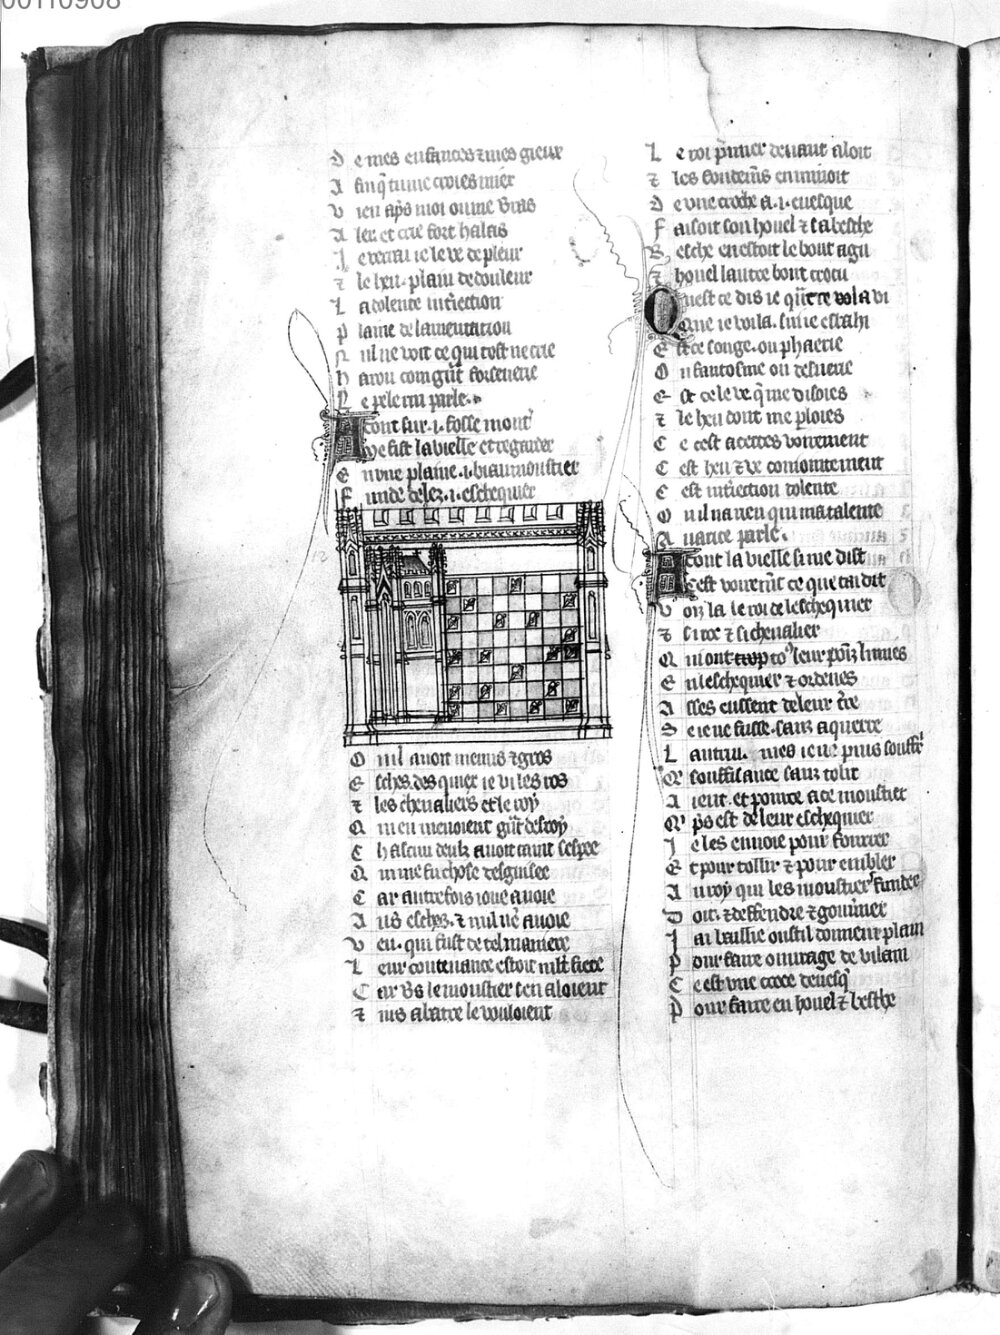 00110908
D e mes enfances z mes gieux
A fin q̃ tu me croies mier
V ien ap̃s moi ou me bras
A ler et crie fort halas
J e verrai ie le ve de pleur
z le heu plain de douleur
L a dolente
P laine de lamentation
N ul ne voit ce qui tost ne crie
H arou com grãt forsenerie
L e pelerin parle
A dont sur .i. fosse mont̃
Me fist la vielle et regarder
E n une plaine .i. biau moustier
F unde delez .i. eschequier
O u il avoit menus z gros
E sches des quiex ie vi les ros
z les chevaliers et le roy
Q ui en menoient grãt desroy
C hascun deulz avoit caint sespee
Q ui me fu chose desguisee
C ar autrefois ioue avoie
A us esches z nul ne avoie
V eu qui fust de tel maniere
L eur contenance estoit mlt̃ fiere
C ar vs le moustier sen aloient
z ius abatre le vouloient
L e roi p̃mier devant aloit
z les fondemẽs enminoit
D e une croche a .i. evesque
F aisoit son houel z sa besche
B esche en estoit le bout agu
z houel lautre bout crocu
Quest ce dis ie qui tre vola vi
Que ie voi la. sui ie esbahi
E st ce songe. ou phaerie
O u fantosme ou desverie
E st ce le ve q̃ me disoies
z le heu dont me ploies
C e cest a certes voirement
C est heu z ve conioinctement
C est dolente
O u il na rien qui matalente
A uarice parle
Adont la vielle si me dist
Cest voiremẽt ce que tai dit
V oiz la le roi de leschequier
z si roc z si chevalier
Q ui ont trop to leur poiz limites
E n leschequier z ordenes
A sses eussent de leur t̃re
S e ie ne fusse. sanz aquerre
L autrui. mes ie ne puis souffr̃
Q̃ souffisance sanz tolir
A ient. et pource a ce moustier
Q̃ p̃s est de leur eschequier
J e les envoie pour fourrer
E t pour tollir z pour embler
A u roy qui les moustiers funder
D oit. z deffendre z gouṽner
J ai baillie oustil dont en plain
P our faire ouvrage de vilain
C e est une croce devesq̃
P our faire en houel z besche